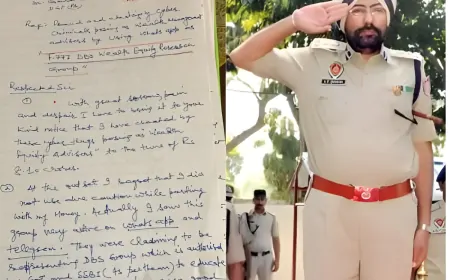 and cyber
criminals posing as Wealth
by using Whats app
F-777 DBS Wealth Equity Research
Group
Respected Sir
① With great sorrow, pain
and despair I have to bring it to your
kind notice that I have cheated by
these cyber thugs posing as wealth
Equity Advisers to the tune of Rs
8.10 crores.
② At the outset I that I did
not use due caution while parting
with my money. Actually I saw this
group very active on whats app and
telegram. They were claiming to be
representing DBS Group which is authorised
and (as to educate